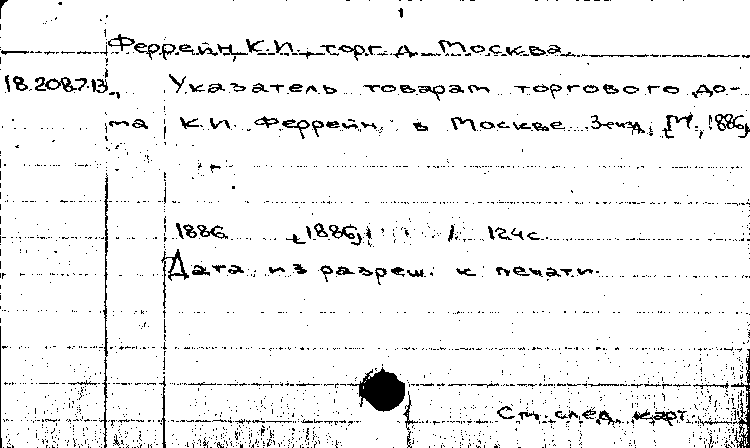 Феррейн, К.И., торг. д. Москва.
18.208.7.13 Указатель товарам торгового до-
ма К.И. Феррейн, в Москве. 3-е изд. [М., 1886]
1886. [1886] 124 с.
Дата из разреш. к печати.
См. след. карт.